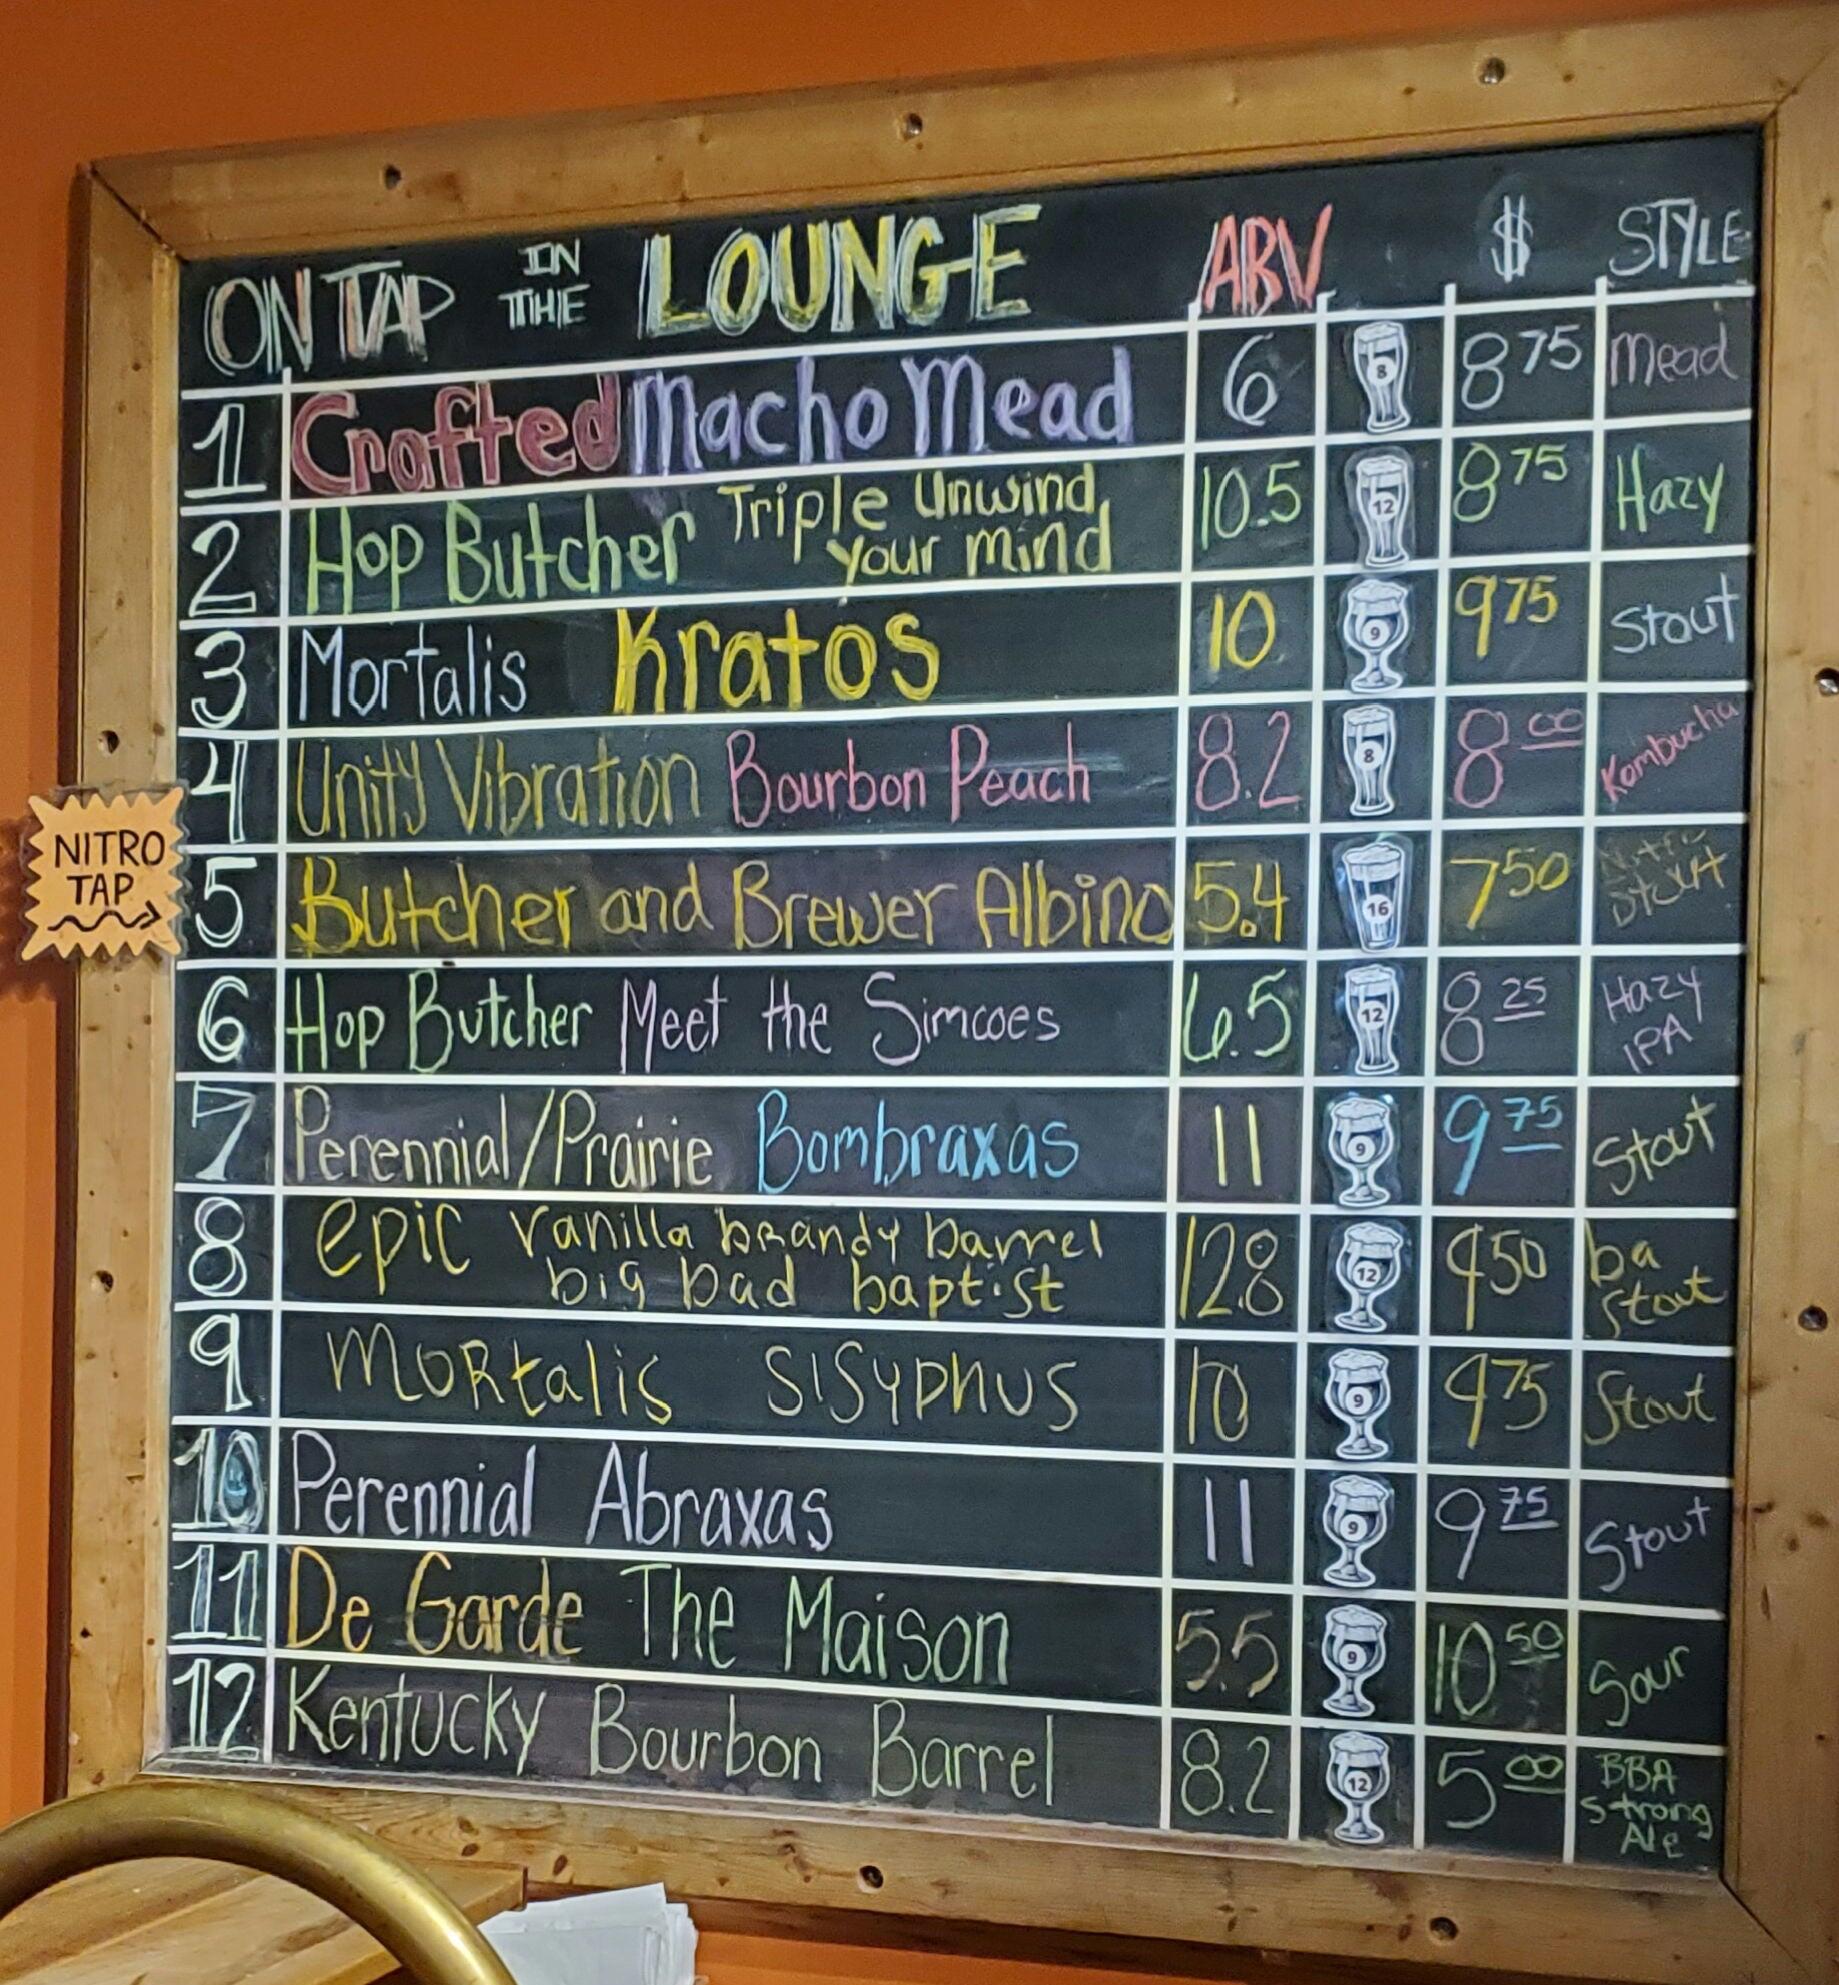 ON TAP IN THE LOUNGE ABV $ STYLE
1 Crafted Macho Mead 6 8 8 75 Mead
2 Hop Butcher Triple Unwind your mind 10.5 12 8 75 Hazy
3 Mortalis Kratos 10 9 9 75 Stout
4 Unity Vibration Bourbon Peach 8.2 8 8 00 Kombucha
NITRO TAP
5 Butcher and Brewer Albino 5.4 16 7 50 Nitro Stout
6 Hop Butcher Meet the Simcoes 6.5 12 8 25 Hazy IPA
7 Perennial/Prairie Bombraxas 11 9 9 75 Stout
8 epic vanilla brandy barrel big bad baptist 12.8 12 9 50 ba Stout
9 MORtalis SISyphus 10 9 9 75 Stout
10 Perennial Abraxas 11 9 9 75 Stout
11 De Garde The Maison 5.5 9 10 50 Sour
12 Kentucky Bourbon Barrel 8.2 12 5 00 BBA Strong Ale